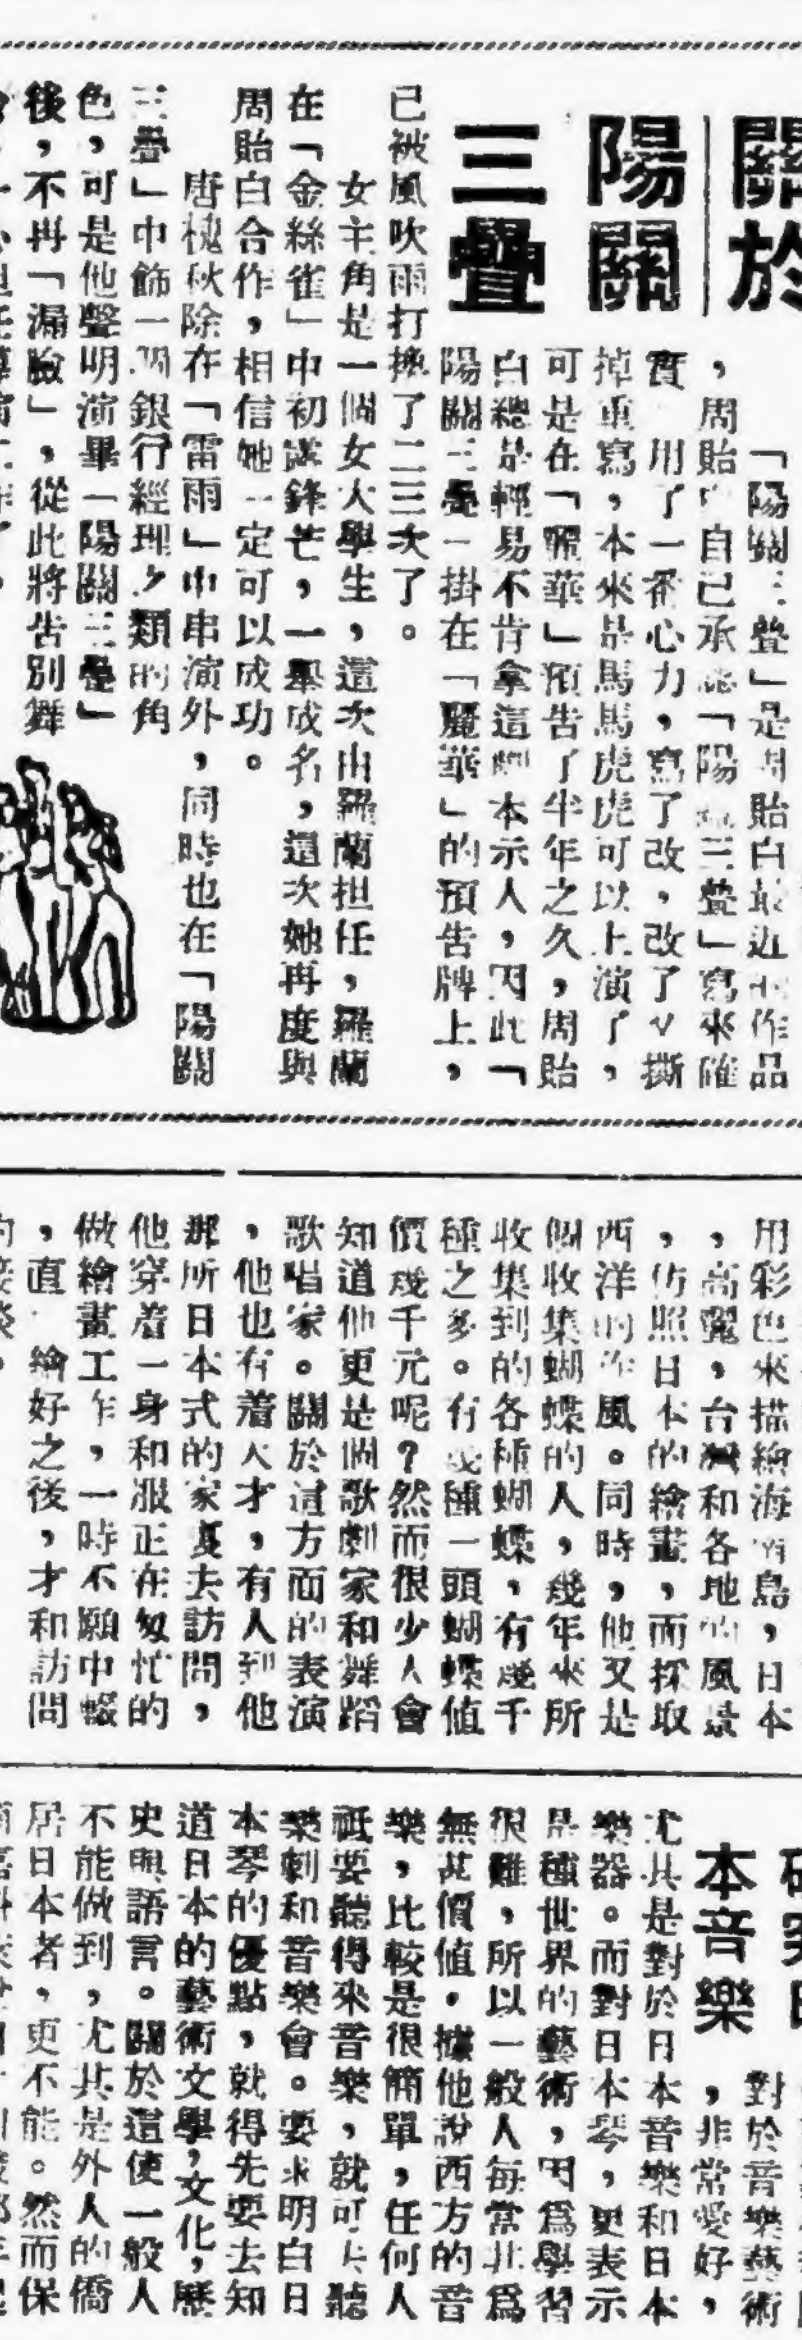 關於
陽關
三疊
「陽關三疊」是周貽白最近的作品
，周貽白自己承認「陽關三疊」寫來確
實用了一番心力，寫了改，改了又撕
掉重寫，本來是馬馬虎虎可以上演了，
可是在「麗華」預告了半年之久，周貽
白總是輕易不肯拿這劇本示人，因此「
陽關三疊」掛在「麗華」的預告牌上，
已被風吹雨打換了二三次了。
女主角是一個女大學生，這次由羅蘭担任，羅蘭
在「金絲雀」中初試鋒芒，一舉成名，這次她再度與
周貽白合作，相信她一定可以成功。
唐槐秋除在「雷雨」中串演外，同時也在「陽關
三疊」中飾一個銀行經理之類的角
色，可是他聲明演畢「陽關三疊」
後，不再「漏臉」，從此將告別舞
用彩色來描繪海南島，日本
，高麗，台灣和各地的風景
，仿照日本的繪畫，而採取
西洋的作風。同時，他又是
個收集蝴蝶的人，幾年來所
收集到的各種蝴蝶，有幾千
種之多。有幾種一頭蝴蝶值
價幾千元呢？然而很少人會
知道他更是個歌劇家和舞蹈
歌唱家。關於這方面的表演
，他也有着天才，有人到他
那所日本式的家裏去訪問，
他穿着一身和服正在匆忙的
做繪畫工作，一時不願中輟
，直　繪好之後，才和訪問
本音樂
對於音樂藝術
，非常愛好，
尤其是對於日本音樂和日本
樂器。而對日本琴，更表示
是種世界的藝術，因爲學習
很難，所以一般人每常非爲
無甚價值。據他說西方的音
樂，比較是很簡單，任何人
祇要聽得來音樂，就可去聽
樂劇和音樂會。要求明白日
本琴的優點，就得先要去知
道日本的藝術文學，文化，歷
史與語言。關於這使一般人
不能做到，尤其是外人的僑
居日本者，更不能。然而保